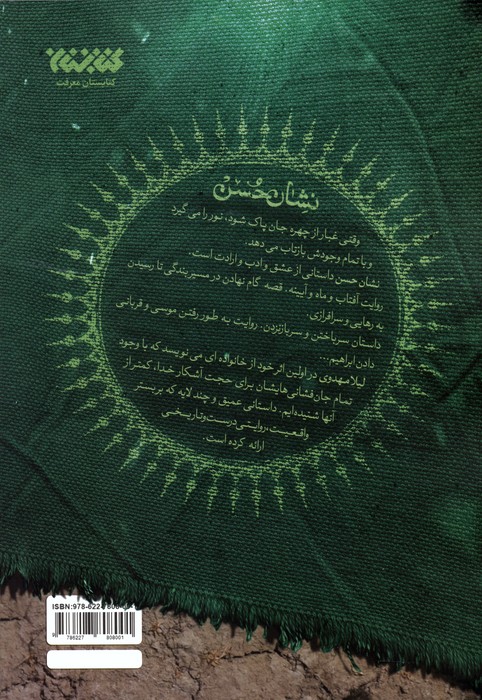 کتابستان
کتابستان معرفت
نشان حُسن
وقتی غبار از چهره جان پاک شود، نور را می گیرد
و با تمام وجودش بازتاب می دهد.
نشان حسن داستانی از عشق و ادب و ارادت است.
روایت آفتاب و ماه و آیینه. قصه گام نهادن در مسیر بندگی تا رسیدن
به رهایی و سرافرازی.
داستان سر باختن و سر باز نزدن. روایت به طور رفتن موسی و قربانی
دادن ابراهیم...
لیلا مهدوی در اولین اثر خود از خانواده ای می نویسد که با وجود
تمام جان‌فشانی‌هایشان برای حجت آشکار خدا، کمتر از
آنها شنیده‌ایم. داستانی عمیق و چند لایه که بر بستر
واقعیت، روایتی درست و تاریخی
ارائه کرده است.
ISBN: 978-622-7808-
9 786227 808001